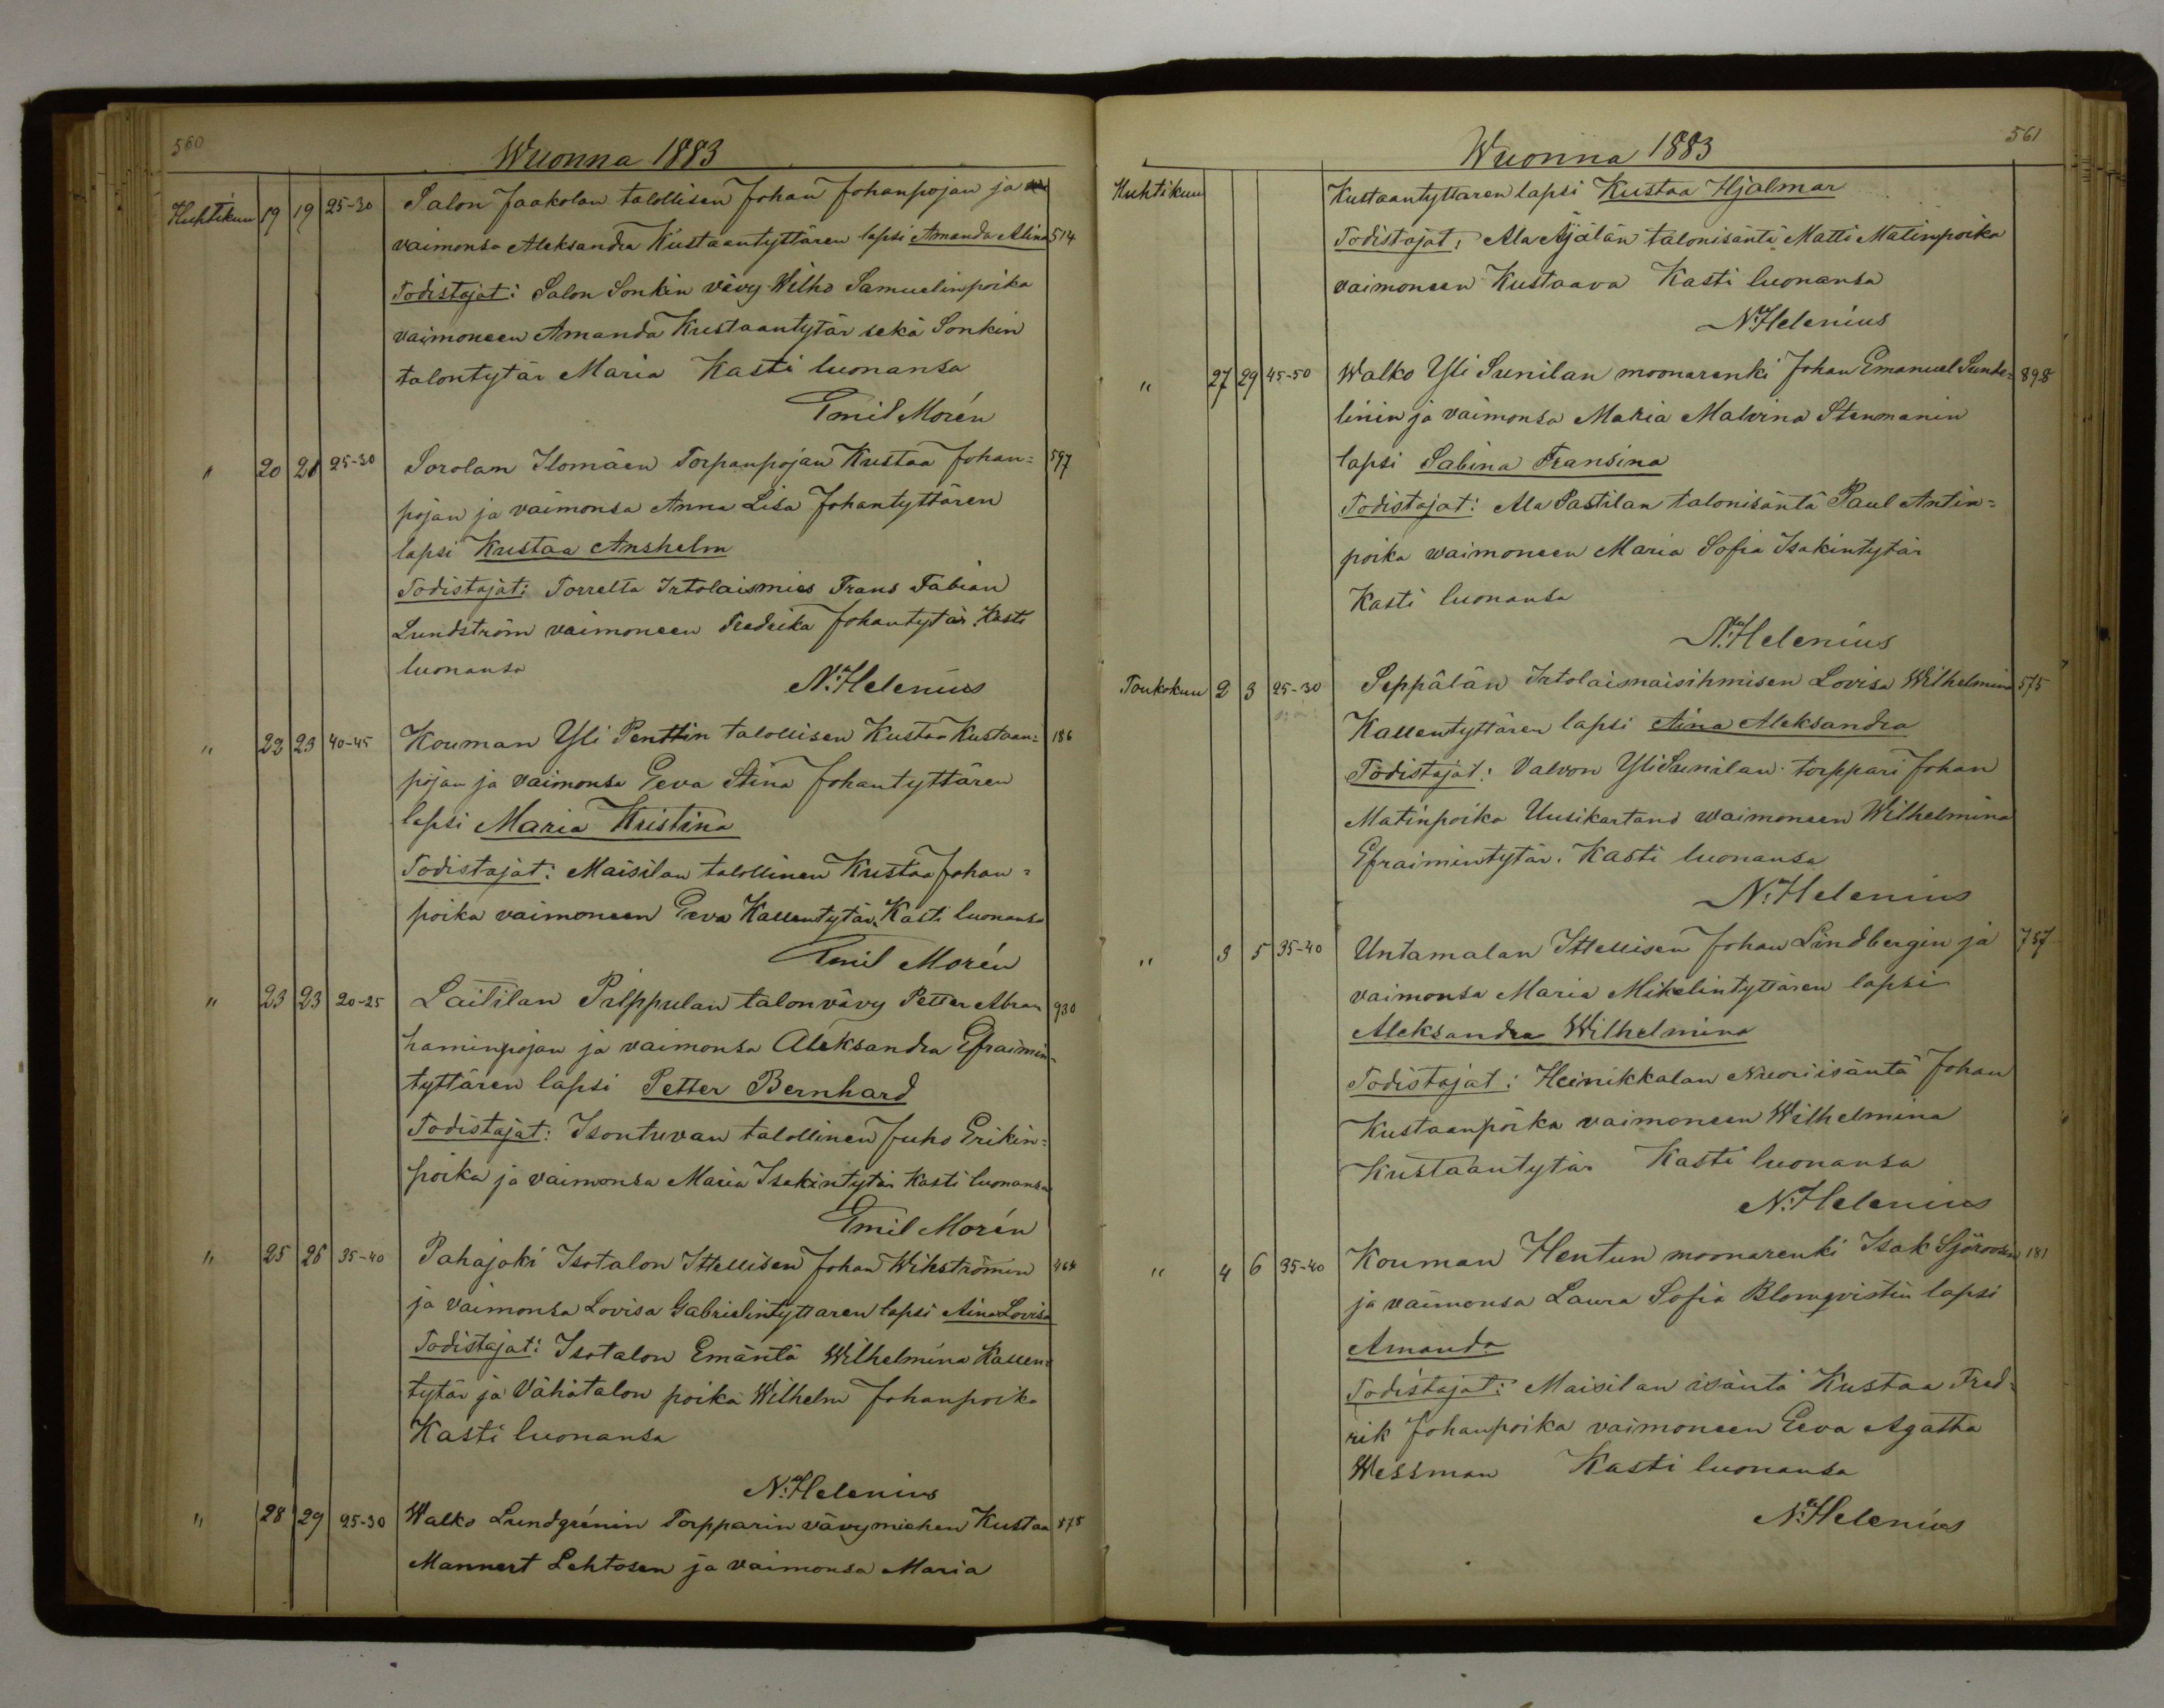 560
Wuonna 1883
Huhtikuu 19 19 25-30 Salon Jaakolan talollisen Johan Johanpojan ja
vaimonsa Aleksandra Kustaantyttären lapsi Amanda Alina 514
Todistajat: Salon Sonkin vävy Wilho Samuelinpoika
vaimoneen Amanda Kustaantytär sekä Sonkin
talontytär Maria Kasti luonansa
Emil Morén
" 20 21 25-30 Sorolan Ilomäen Torpanpojan Kustaa Johan= 597
pojan ja vaimonsa Anna Lisa Johantyttären
lapsi Kustaa Anshelm
Todistajat: Torrelta Irtolaismies Frans Fabian
Lundström vaimoneen Fredrika Johantytär. Kasti
luonansa
N. Helenius
" 22 23 40-45 Kouman Yli Penttin talollisen Kustaa Kustaan= 186
pojan ja vaimonsa Eeva Stina Johantyttären
lapsi Maria Kristina
Todistajat: Maisilan talollinen Kustaa Johan=
poika vaimoneen Eeva Kallentytär. Kasti luonansa
Emil Morén
" 23 23 20-25 Laitilan Prippulan talonvävy Petter Abra= 930
haminpojan ja vaimonsa Aleksandra Efraimin=
tyttären lapsi Petter Bernhard
Todistajat: Isontuvan talollinen Juho Erikin=
poika ja vaimonsa Maria Isakintytär Kasti luonansa
Emil Morén
" 25 26 35-40 Pahajoki Isotalon Ittellisen Johan Wikströmin 464
ja vaimonsa Lovisa Gabrielintyttaren lapsi Aina Lovisa
Todistajat: Isotalon Emäntä Wilhelmina Kallen=
tytär ja Vähätalon poika Wilhelm Johanpoika
Kasti luonansa
N. Helenius
" 28 29 25-30 Walko Lundgrénin Torpparin vävymiehen Kustaa 878
Mannert Lehtosen ja vaimonsa Maria
561
Wuonna 1883
Huhtikuu Kustaantyttaren lapsi Kustaa Hjalmar
Todistajat: Ala Äjälän talonisäntä Matti Matinpoika
vaimoneen Kustaava Kasti luonansa
N. Helenius
" 27 29 45-50 Walko Yli Sunilan moonarenki Johan Emanuel Sunde= 898
linin ja vaimonsa Maria Malvina Stenmanin
lapsi Sabina Fransina
Todistajat: Ala Pastilan talonisäntä Paul Antin=
poika waimoneen Maria Sofia Isakintytär
Kasti luonansa
N. Helenius
Toukokuu 2 3 25-30 Seppälän Irtolaisnaisihmisen Lovisa Wilhelmina 575
Kallentyttären lapsi Aina Aleksandra
Todistajat: Valvon Yli Sunilan torppari Johan
Matinpoika Uusikartano waimoneen Wilhelmina
Efraimintytär. Kasti luonansa
N. Helenius
" 3 5 35-40 Untamalan Ittellisen Johan Lindbergin ja 757
vaimonsa Maria Mikelintyttären lapsi
Aleksandra Wilhelmina
Todistajat: Heinikkalan Nuoriisäntä Johan
Kustaanpoika vaimoneen Wilhelmina
Kustaantytär Kasti luonansa
N. Helenius
" 4 6 35-40 Kouman Hentun moonarenki Isak Sjöroosin 181
ja vaimonsa Laura Sofia Blomqvistin lapsi
Amanda
Todistajat: Maisilan isäntä Kustaa Fred=
rik Johanpoika vaimoneen Eeva Agatha
Wessman Kasti luonansa
N. Helenius